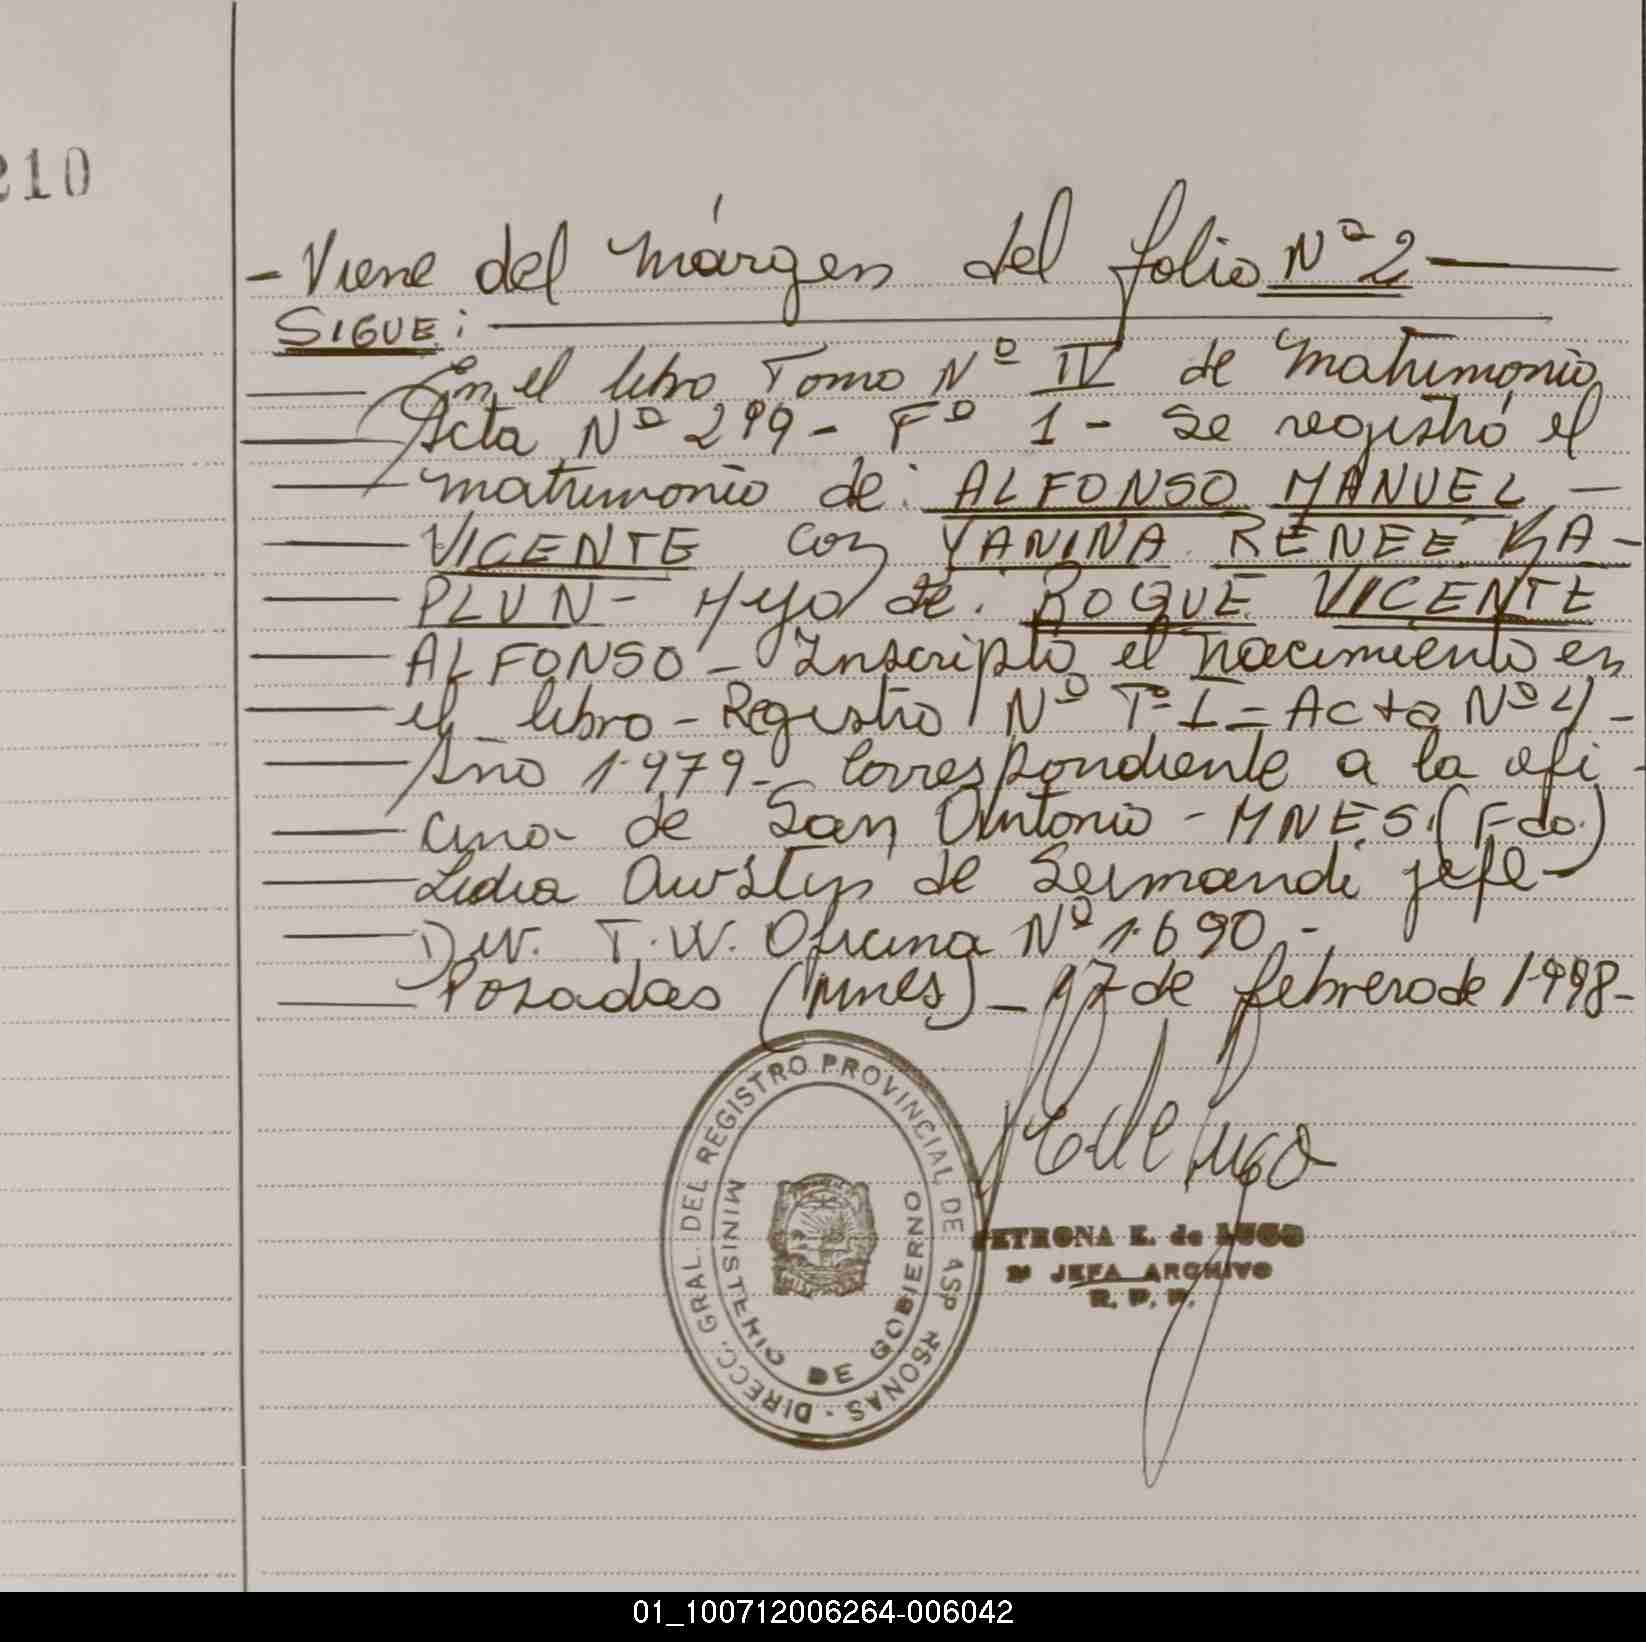 210
- Viene del márgen del folio Nº 2
SIGUE:
En el libro Tomo Nº IV de Matrimonio
Acta Nº 299 - Fº 1 - se registró el
matrimonio de: ALFONSO MANUEL -
VICENTE con YANINA RENEÉ KA-
PLUN - Hijo de. ROQUE VICENTE
ALFONSO - Inscripto el nacimiento en
el libro - Registro Nº Tº I = Acta Nº 4 -
Año 1.979 - Correspondiente a la ofi-
cina de San Antonio - MNES. (Fdo.)
Lidia de jefe -
Div. T.W. Oficina Nº 1.690 -
Posadas (Mnes) - 17 de febrero de 1.998 -
DIRECC. GRAL. DEL REGISTRO PROVINCIAL DE
MINISTERIO DE GOBIERNO
PETRONA E. de LUGO
JEFA ARCHIVO
R. P. P.
01_100712006264-006042